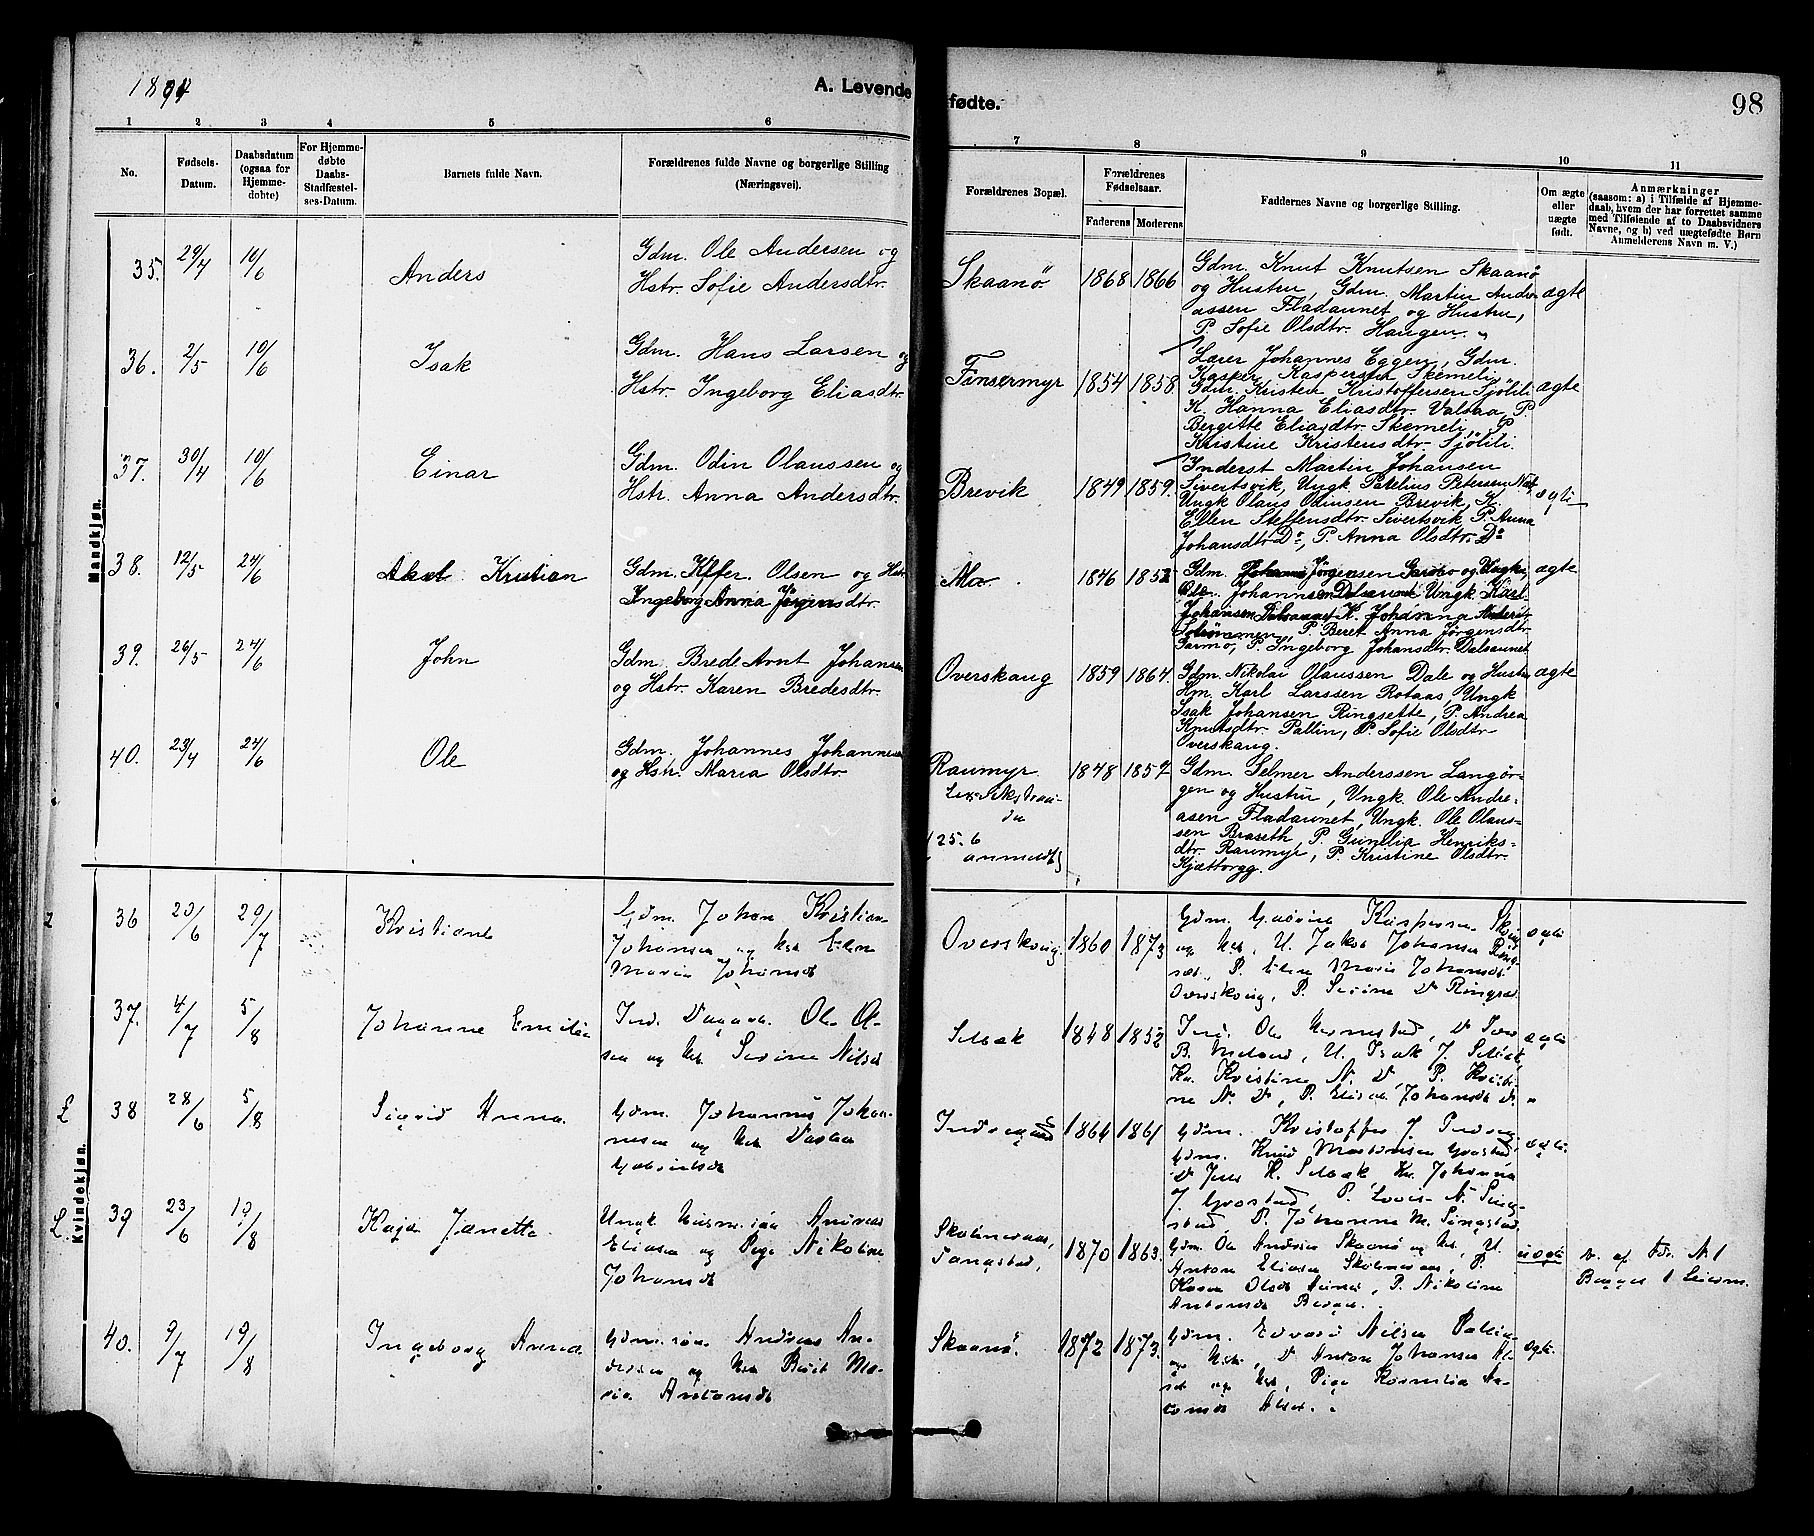 1894
A. Levende
fødte.
98
1 2 3 4 5 6 7 8 9 10 11
No.
Fødsels-
Datum.
Daabsdatum
(ogsaa for
Hjemme-
døbte)
For Hjemme-
døbte
Daabs-
Stadfæstel-
ses-Datum.
Barnets fulde Navn.
Forældrenes fulde Navne og borgerlige Stilling
(Næringsvei).
Forældrenes Bopæl.
Forældrenes
Fødselsaar.
Faderens Moderens
Faddernes Navne og borgerlige Stilling.
Om ægte
eller
uægte
født.
Anmærkninger
(saasom: a) i Tilfælde af Hjemme-
daab, hvem der har forrettet samme
med Tilføiende af to Daabsvidners
Navne, og b) ved uægtefødte Børn
Anmelderens Navn m. V.)
Mandkjøn.
35. 29/4 10/6 Anders
Gdm. Ole Andersen og
Hstr. Sofie Andersdtr.
Skaanö 1868 1866
Gdm. Knut Knutsen Skaanö
og Hustru, Gdm. Martin Andre-
assen Fladaunet og Hustru,
P. Sofie Olsdtr. Haugen.
ægte
36. 2/5 10/6 Isak
Gdm. Hans Larsen og
Hstr. Ingeborg Eliasdtr.
Finsermyr 1854 1858
Lærer Johannes Eggen, Gdm.
Kasper Kaspersen Skemeli
Gdm. Kristen Kristoffersen Sjölili
K. Hanna Eliasdtr. Valsaa, P.
Bergitte Eliasdtr. Skemeli, P
Kristine Kristensdtr. Sjölili.
ægte
37. 30/4 10/6 Einar
Gdm. Odin Olaussen og
Hstr. Anna Andersdtr.
Brevik 1849 1859.
Inderst Martin Johansen
Sivertsvik, Ungk. Parelius Petersen
Ungk Olaus Odinsen Brevik, K.
Ellen Steffensdtr. Sivertsvik P. Anna
Johansdtr Do, P. Anna Olsdtr. Do
ægte
38. 12/5 24/6 Aksel Kristian
Gdm. Olsen og Hstr.
Ingeborg Anna Jørgensdtr.
Mo. 1846 1852
Gdm. Johannes Jørgensen og Ungk.
Ole Johannsen Dalsaunet Ungk Karl
Johansen Dalsaunet K. Johanna
P. Beret Anna Jørgensdtr.
P. Ingeborg Johansdtr. Dalsaunet
ægte
39. 26/5 24/6 John
Gdm. Brede Arnt Johansen
og Hstr. Karen Bredesdtr.
Overskaug 1859 1864.
Gdm. Nikolai Olaussen Dale og Hustru
Hm. Karl Larssen Rotaas, Ungk
Isak Johansen Ringsette, P. Andrea
Knutsdtr. Pallin, P. Sofie Olsdtr.
Overskaug.
ægte
40. 23/4 24/6 Ole
Gdm. Johannes Johannesen
og Hstr. Maria Olsdtr.
Raumyr 1848 1857
25.6
anmeldt
Gdm. Selmer Anderssen Langör-
gen og Hustru, Ungk. Ole Andre-
asen Fladaunet, Ungk. Ole Olaus-
sen Braseth P. Gunelia Henriks-
dtr. Raumyr, P. Kristine Olsdtr.
Kjætborgg.
Kvindekjøn.
36 23/6 29/7 Kristiane
Gdm. Johan Kristian
Johansen og Hst Elen
Maria Johansdt
Overskoug. 1860 1873
Gdm. Kaspersen
og Hst, U. Jakob Johansen Ring-
set, P. Elen Marie Johansdt
Overskoug, P. Serine D Ringset
ægte
37. 4/7 5/8 Johanne Emilie
Ind. Ole Ol-
sen og Hst. Serine Nilsdt
Selbæk 1848 1852
Ind. Ole
U. Isak J. Selbæk,
Kr. Kristine N. D, P. Kristi-
ne N. D, P. Johansdt D.
ægte
L 38 28/6 5/8 Sigrid Anna.
Gdm. Johannes Johan-
nesen og Hst
Gabrielsdt
1864 1861
Gdm. Kristoffer J.
Gdm. Knud Mortensen Grostad,
D Jens K. Selbæk Kr. Johanna
J. Grostad, P. Lovise N. Sing-
stad, P. Johanne M. Singstad.
ægte
L. 39 23/6 12/8 Kaja Janette.
Ungk Andreas
Eliasen og Pige Nikoline
Johansdt
1870 1863.
Gdm. Ole Andersen Skaanö og Hst, U.
Anton Eliasen P.
Karen Olsdt P. Nikoline
Antonsdt
uægte
af Fdr. No. 1
40. 9/7 19/8 Ingeborg Anna
Gdm.søn Andreas An-
dersen og Hst Berit Ma-
ria Antonsdt
Skaanö. 1872 1873.
Gdm. Edvard Nilsen Pallin
og Hst, D Anton Johansen Al-
set og Hst, Pige Kornelia An-
tonsdt Alset.
ægte